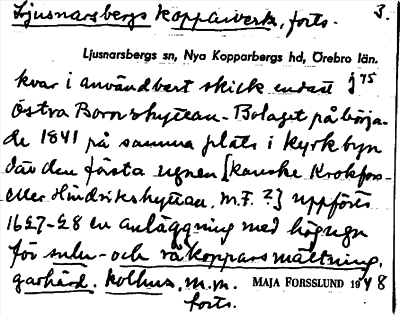 Ljusnarsbergs kopparverk, forts. 3.
Ljusnarsbergs sn, Nya Kopparbergs hd, Örebro län.
kvar i användbart skick endast
Östra Bornshyttan - Bolaget påbörja-
de 1841 på samma plats i kyrkbyn
där den första ugnen [kanske Krokfors-
eller Hindrikshyttan, M.F. ?] uppförts
1627-28 en anläggning med högugn
för sulu- och råkopparsmältning,
garhärd, kolhus, m.m.
MAJA FORSSLUND 1948
forts.